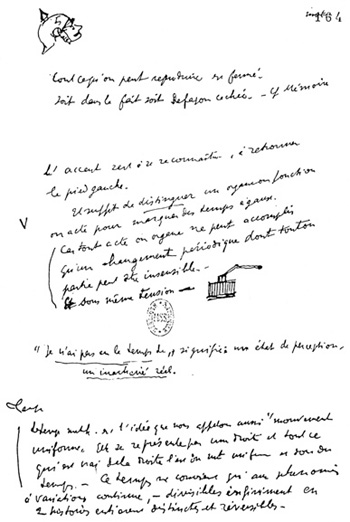 164
Tout ce qu'on peut reproduire est fermé
soit dans le fait soit de façon cachée — cf Mémoire
L'accent sert à se reconnaître, à retrouver
le pied gauche.
Il suffit de distinguer un organe ou fonction
ou acte pour marquer des temps égaux.
Car tout acte ou organe ne peut accomplir
qu'un changement périodique dont toute ou
partie peut être insensible. —
sous même tension —
"Je n'ai pas eu le temps de" signifie un état de perception,
un inachevé réel.
Temps
Le temps math. est l'idée que nous appelons aussi "mouvement
uniforme". Il se représente par une droite et tout ce
qui est vrai de la droite l'est du mt uniforme et du
temps. — Ce temps ne convient qu'aux phénomènes
à variations continues, — divisibles infiniment en
2 histoires entières distinctes et réversibles. —